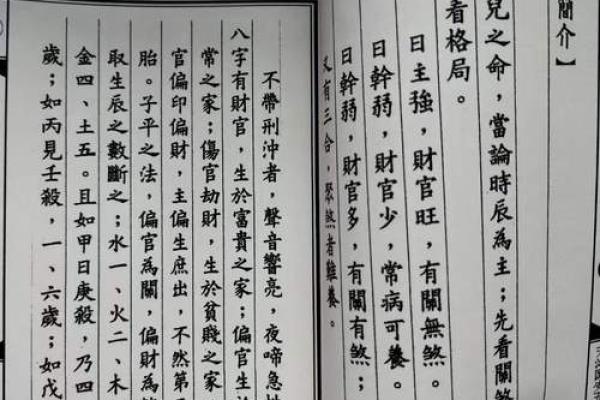 簡介】
兒之命，當論時辰為主；先看關煞
看格局。
日主強，財官旺，有關無煞。
日幹弱，財官少，常病可養。
日幹弱，財官多，有關有煞；
又有三合，聚煞者難養。
不帶刑沖者，聲音響亮，夜啼急
八字有財官，生於富貴之家；偏官生
常之家；傷官劫財，生於貧賤之家
官偏印偏財，主偏生庶出，不然第
胎。子平之法，偏官為關，偏財為
取生辰之數斷之；水一、火二、木
金四、土五。且如甲日庚殺，乃四
歲；如丙見壬殺，一、六歲；如戊